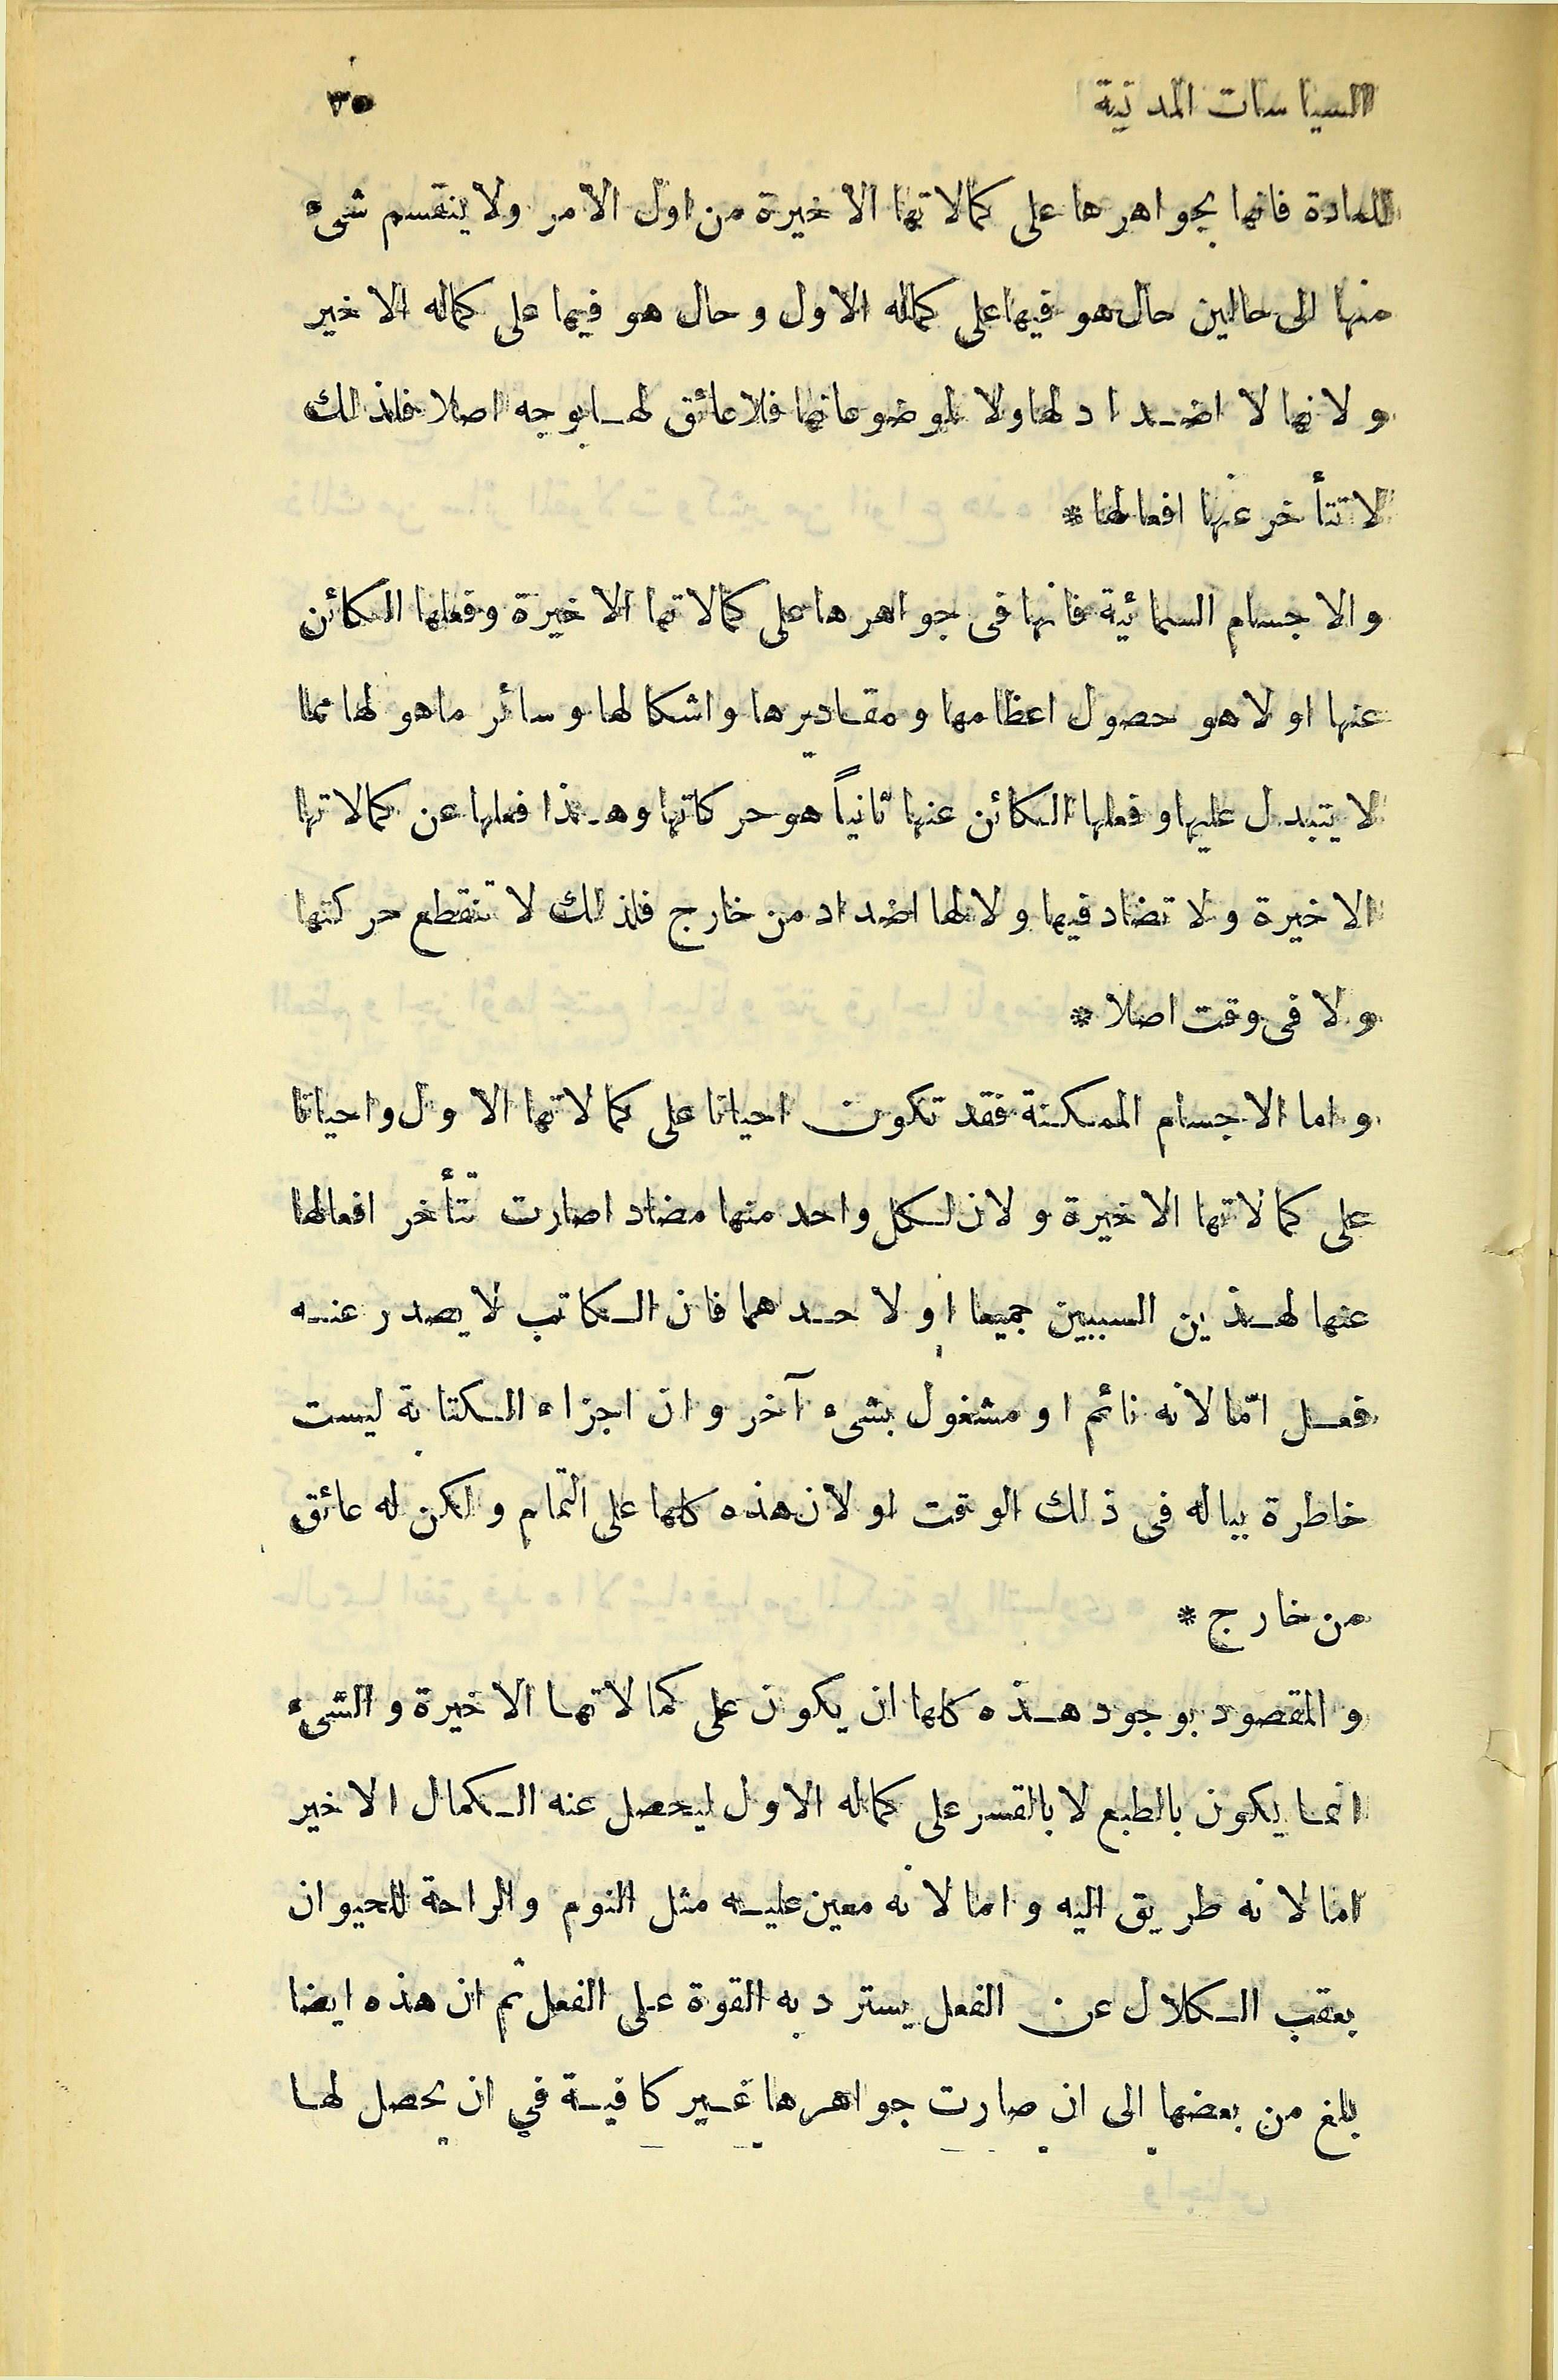 السياسات المدنية ٣٥
للمادة فانها بجواهرها على كمالاتها الاخيرة من اول الامر ولا ينقسم شىء
منها الى حالين حال هو فيها على كماله الاول وحال هو فيها على كماله الاخير
ولانها لا اضداد لها ولا لموضوعاتها فلا عائق لها بوجه اصلا فلذلك
لا تتأخر عنها افعالها *
والاجسام السمائية فانها فى جواهرها على كمالاتها الاخيرة وفعلها الكائن
عنها اولا هو حصول اعظامها ومقاديرها واشكالها وسائر ماهو لها مما
لا يتبدل عليها وفعلها الكائن عنها ثانياً هو حركاتها وهذا فعلها عن كمالاتها
الاخيرة ولا تضاد فيها ولا لها اضداد من خارج فلذلك لا تنقطع حركتها
ولا فى وقت اصلا *
واما الاجسام الممكنة فقد تكون احيانا على كمالاتها الاول واحيانا
على كمالاتها الاخيرة ولان لكل واحد منها مضادا صارت تتأخر افعالها
عنها لهذين السببين جميعا او لاحدهما فان الكاتب لا يصدر عنه
فعل امّا لانه نائم او مشغول بشىء آخر وان اجزاء الكتابة ليست
خاطرة بباله فى ذلك الوقت او لان هذه كلها على التمام ولكن له عائق
من خارج *
والمقصود بوجود هذه كلها ان يكون على كمالاتها الاخيرة والشىء
انما يكون بالطبع لا بالقسر على كماله الاول ليحصل عنه الكمال الاخير
اما لانه طريق اليه واما لانه معين عليه مثل النوم والراحة للحيوان
يعقب الكلال عن الفعل يسترد به القوة على الفعل ثم ان هذه ايضا
بلغ من بعضها الى ان صارت جواهرها غير كافية في ان يحصل لها